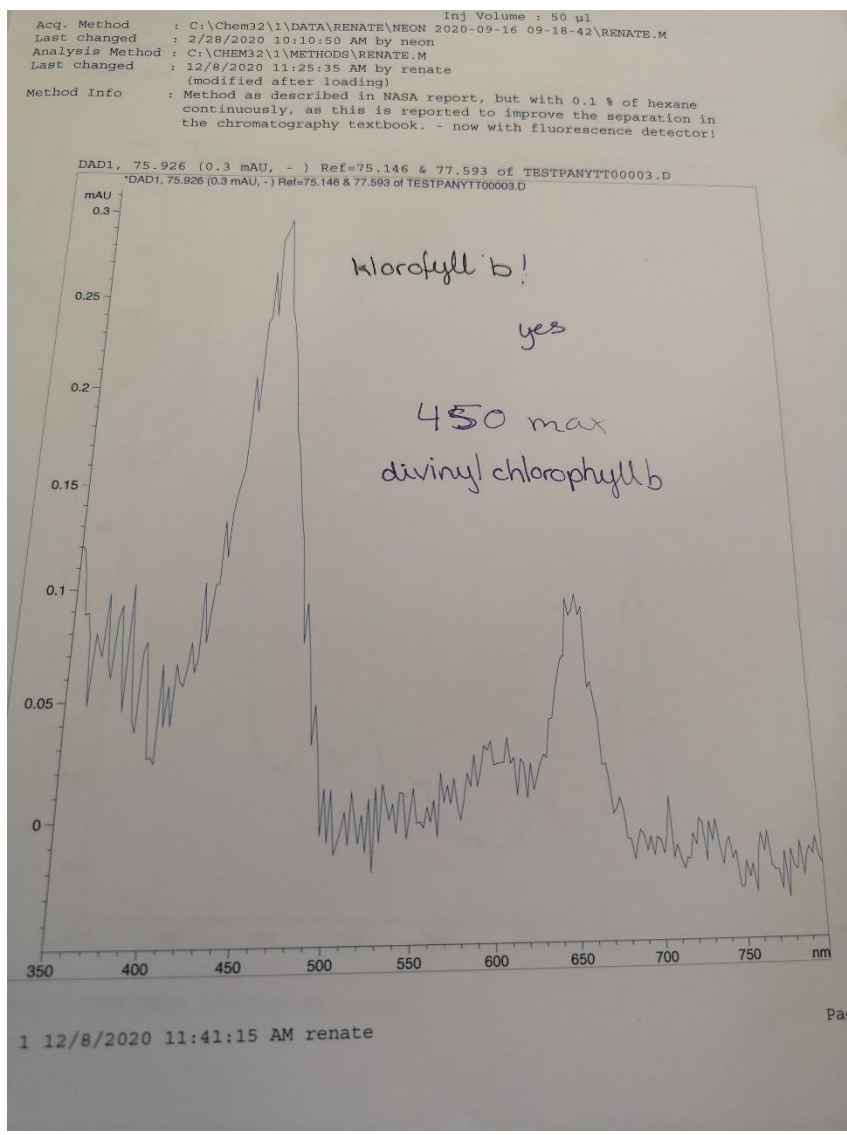 Inj Volume : 50 µl
Acq. Method : C:\Chem32\1\DATA\RENATE\NEON 2020-09-16 09-18-42\RENATE.M
Last changed : 2/28/2020 10:10:50 AM by neon
Analysis Method : C:\CHEM32\1\METHODS\RENATE.M
Last changed : 12/8/2020 11:25:35 AM by renate
(modified after loading)
Method Info : Method as described in NASA report, but with 0.1 % of hexane
continuously, as this is reported to improve the separation in
the chromatography textbook. - now with fluorescence detector!
DAD1, 75.926 (0.3 mAU, - ) Ref=75.146 & 77.593 of TESTPANYTT00003.D
*DAD1, 75.926 (0.3 mAU, - ) Ref=75.146 & 77.593 of TESTPANYTT00003.D
mAU
0.3
klorofyll b!
0.25
yes
0.2
450 max
divinyl chlorophyll b
0.15
0.1
0.05
0
350 400 450 500 550 600 650 700 750 nm
Pa
1 12/8/2020 11:41:15 AM renate